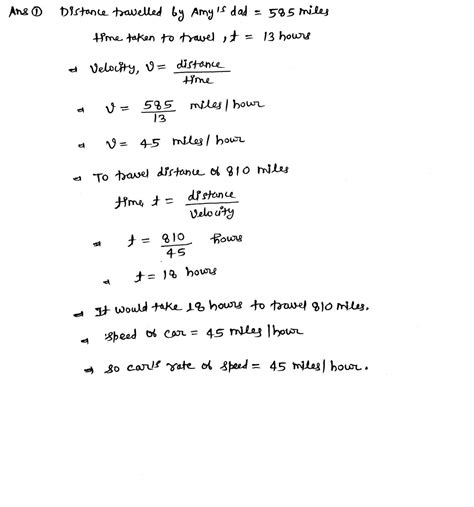 Ans ① Distance travelled by Amy's dad = 585 miles
time taken to travel, t = 13 hours
→ Velocity, v = distance / time
→ v = 585 / 13 miles / hour
→ v = 45 miles / hour
→ To travel distance of 810 miles
time, t = distance / Velocity
→ t = 810 / 45 hours
→ t = 18 hours
→ It would take 18 hours to travel 810 miles.
→ speed of car = 45 miles / hour
→ so car's rate of speed = 45 miles / hour.